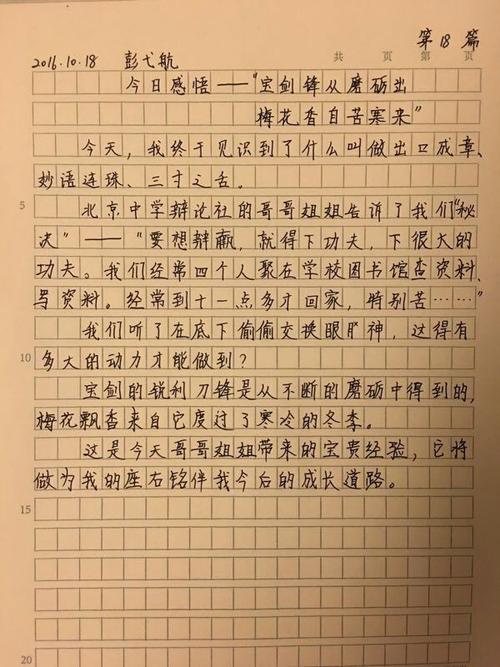 第18篇
2016.10.18 彭弋航 共 页 第 页
今日感悟——“宝剑锋从磨砺出
梅花香自苦寒来”
今天，我终于见识到了什么叫做出口成章、
妙语连珠、三寸之舌。
5 北京中学辩论社的哥哥姐姐告诉了我们“秘
决”——“要想辩赢，就得下功夫，下很大的
功夫。我们经常四个人聚在学校图书馆查资料、
写资料。经常到十一点多才回家，特别苦……”
我们听了在底下偷偷交换眼神，这得有
10 多大的动力才能做到？
宝剑的锐利刀锋是从不断的磨砺中得到的，
梅花飘香来自它度过了寒冷的冬季。
这是今天哥哥姐姐带来的宝贵经验，它将
做为我的座右铭伴我今后的成长道路。
15
20